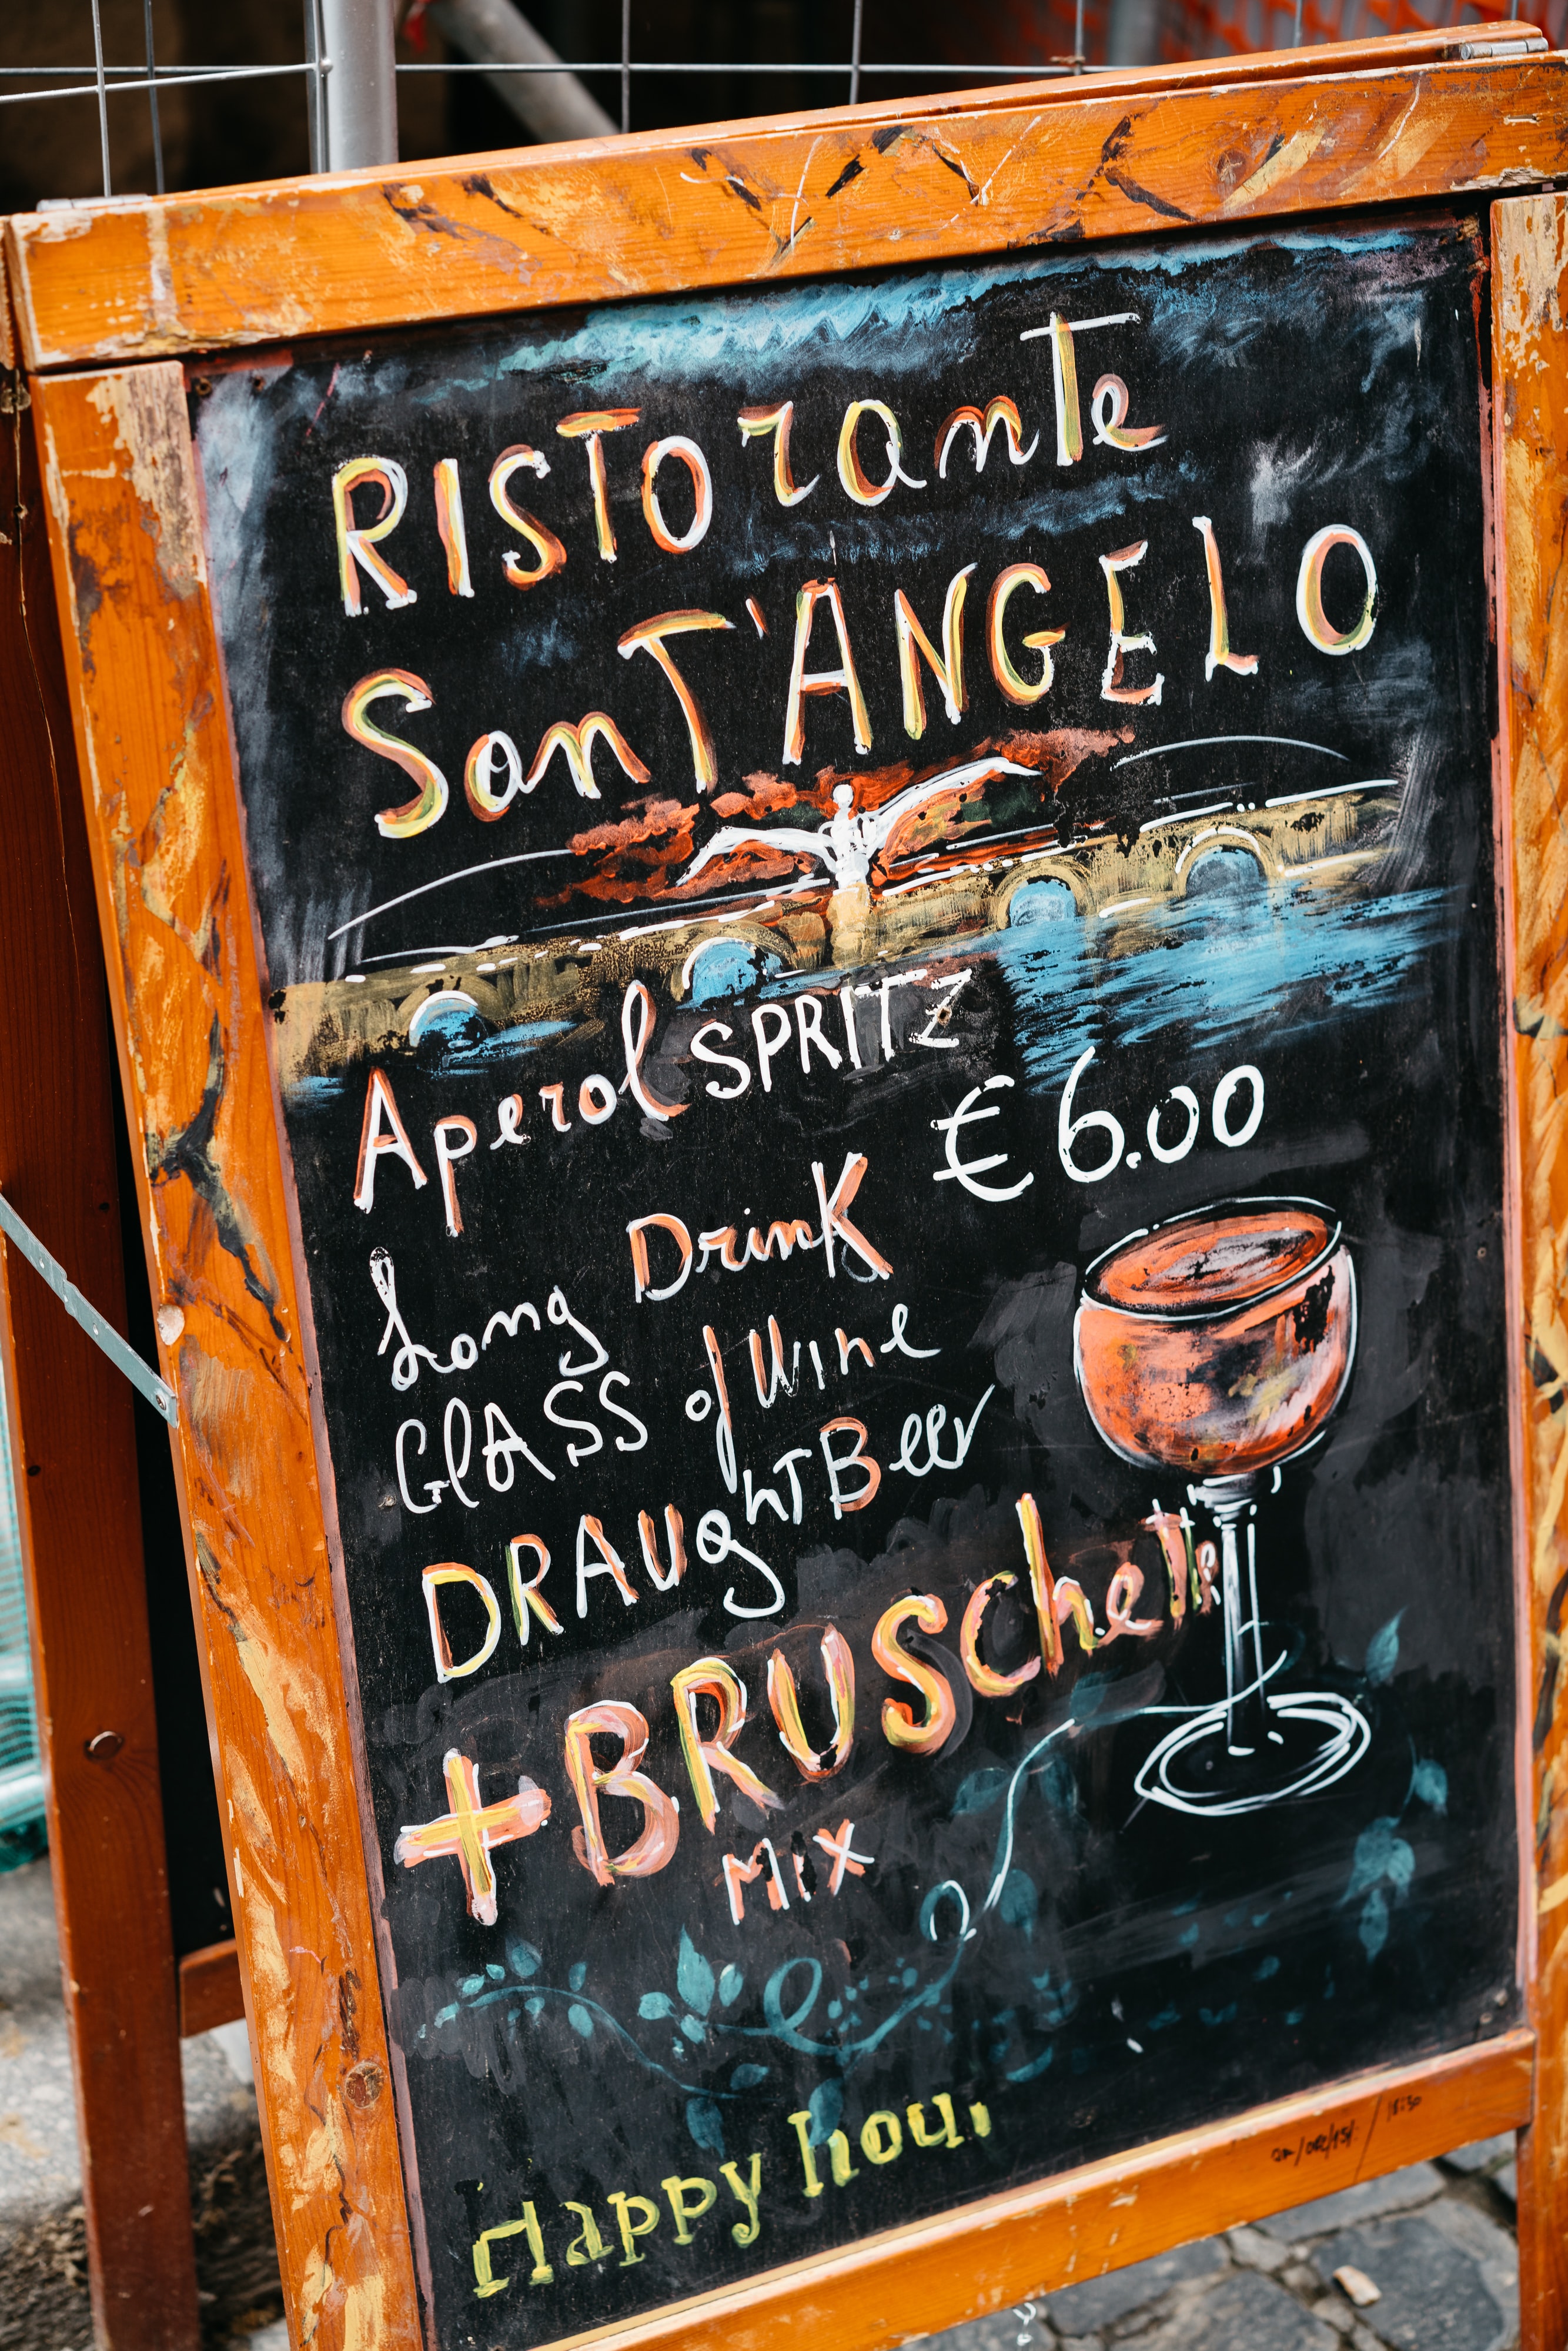 RISTOrante
SanT'ANGELO
Aperol SPRITZ
€ 6.00
Long Drink
GlASS of Wine
DRAUghT Beer
+BRUSchette
MIX
Happy hour